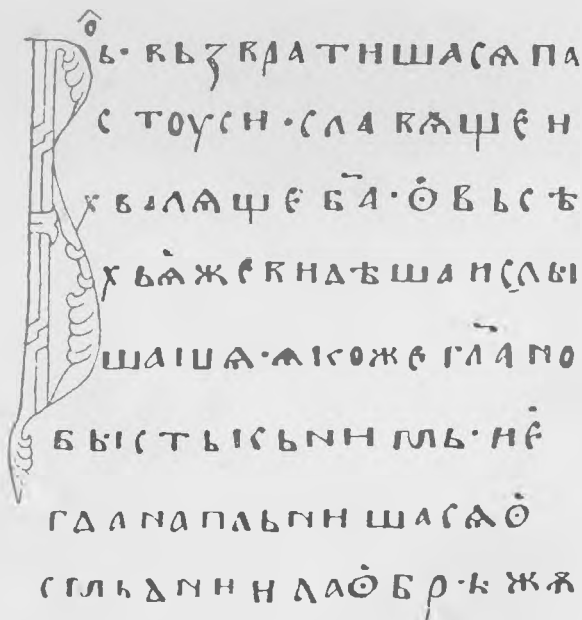 Вь о҆· вьзвратишасѧ па
стоуси·славѧщеи
хвалѧще ба҃·о҆вьсѣ
хьѧжевидѣшаислꙑ
шашѧ·ѧкожегл҃ано
бꙑстькьнимь·ие҆
гданапльнишасѧо҆
смьдниидао҆брѣжѫ